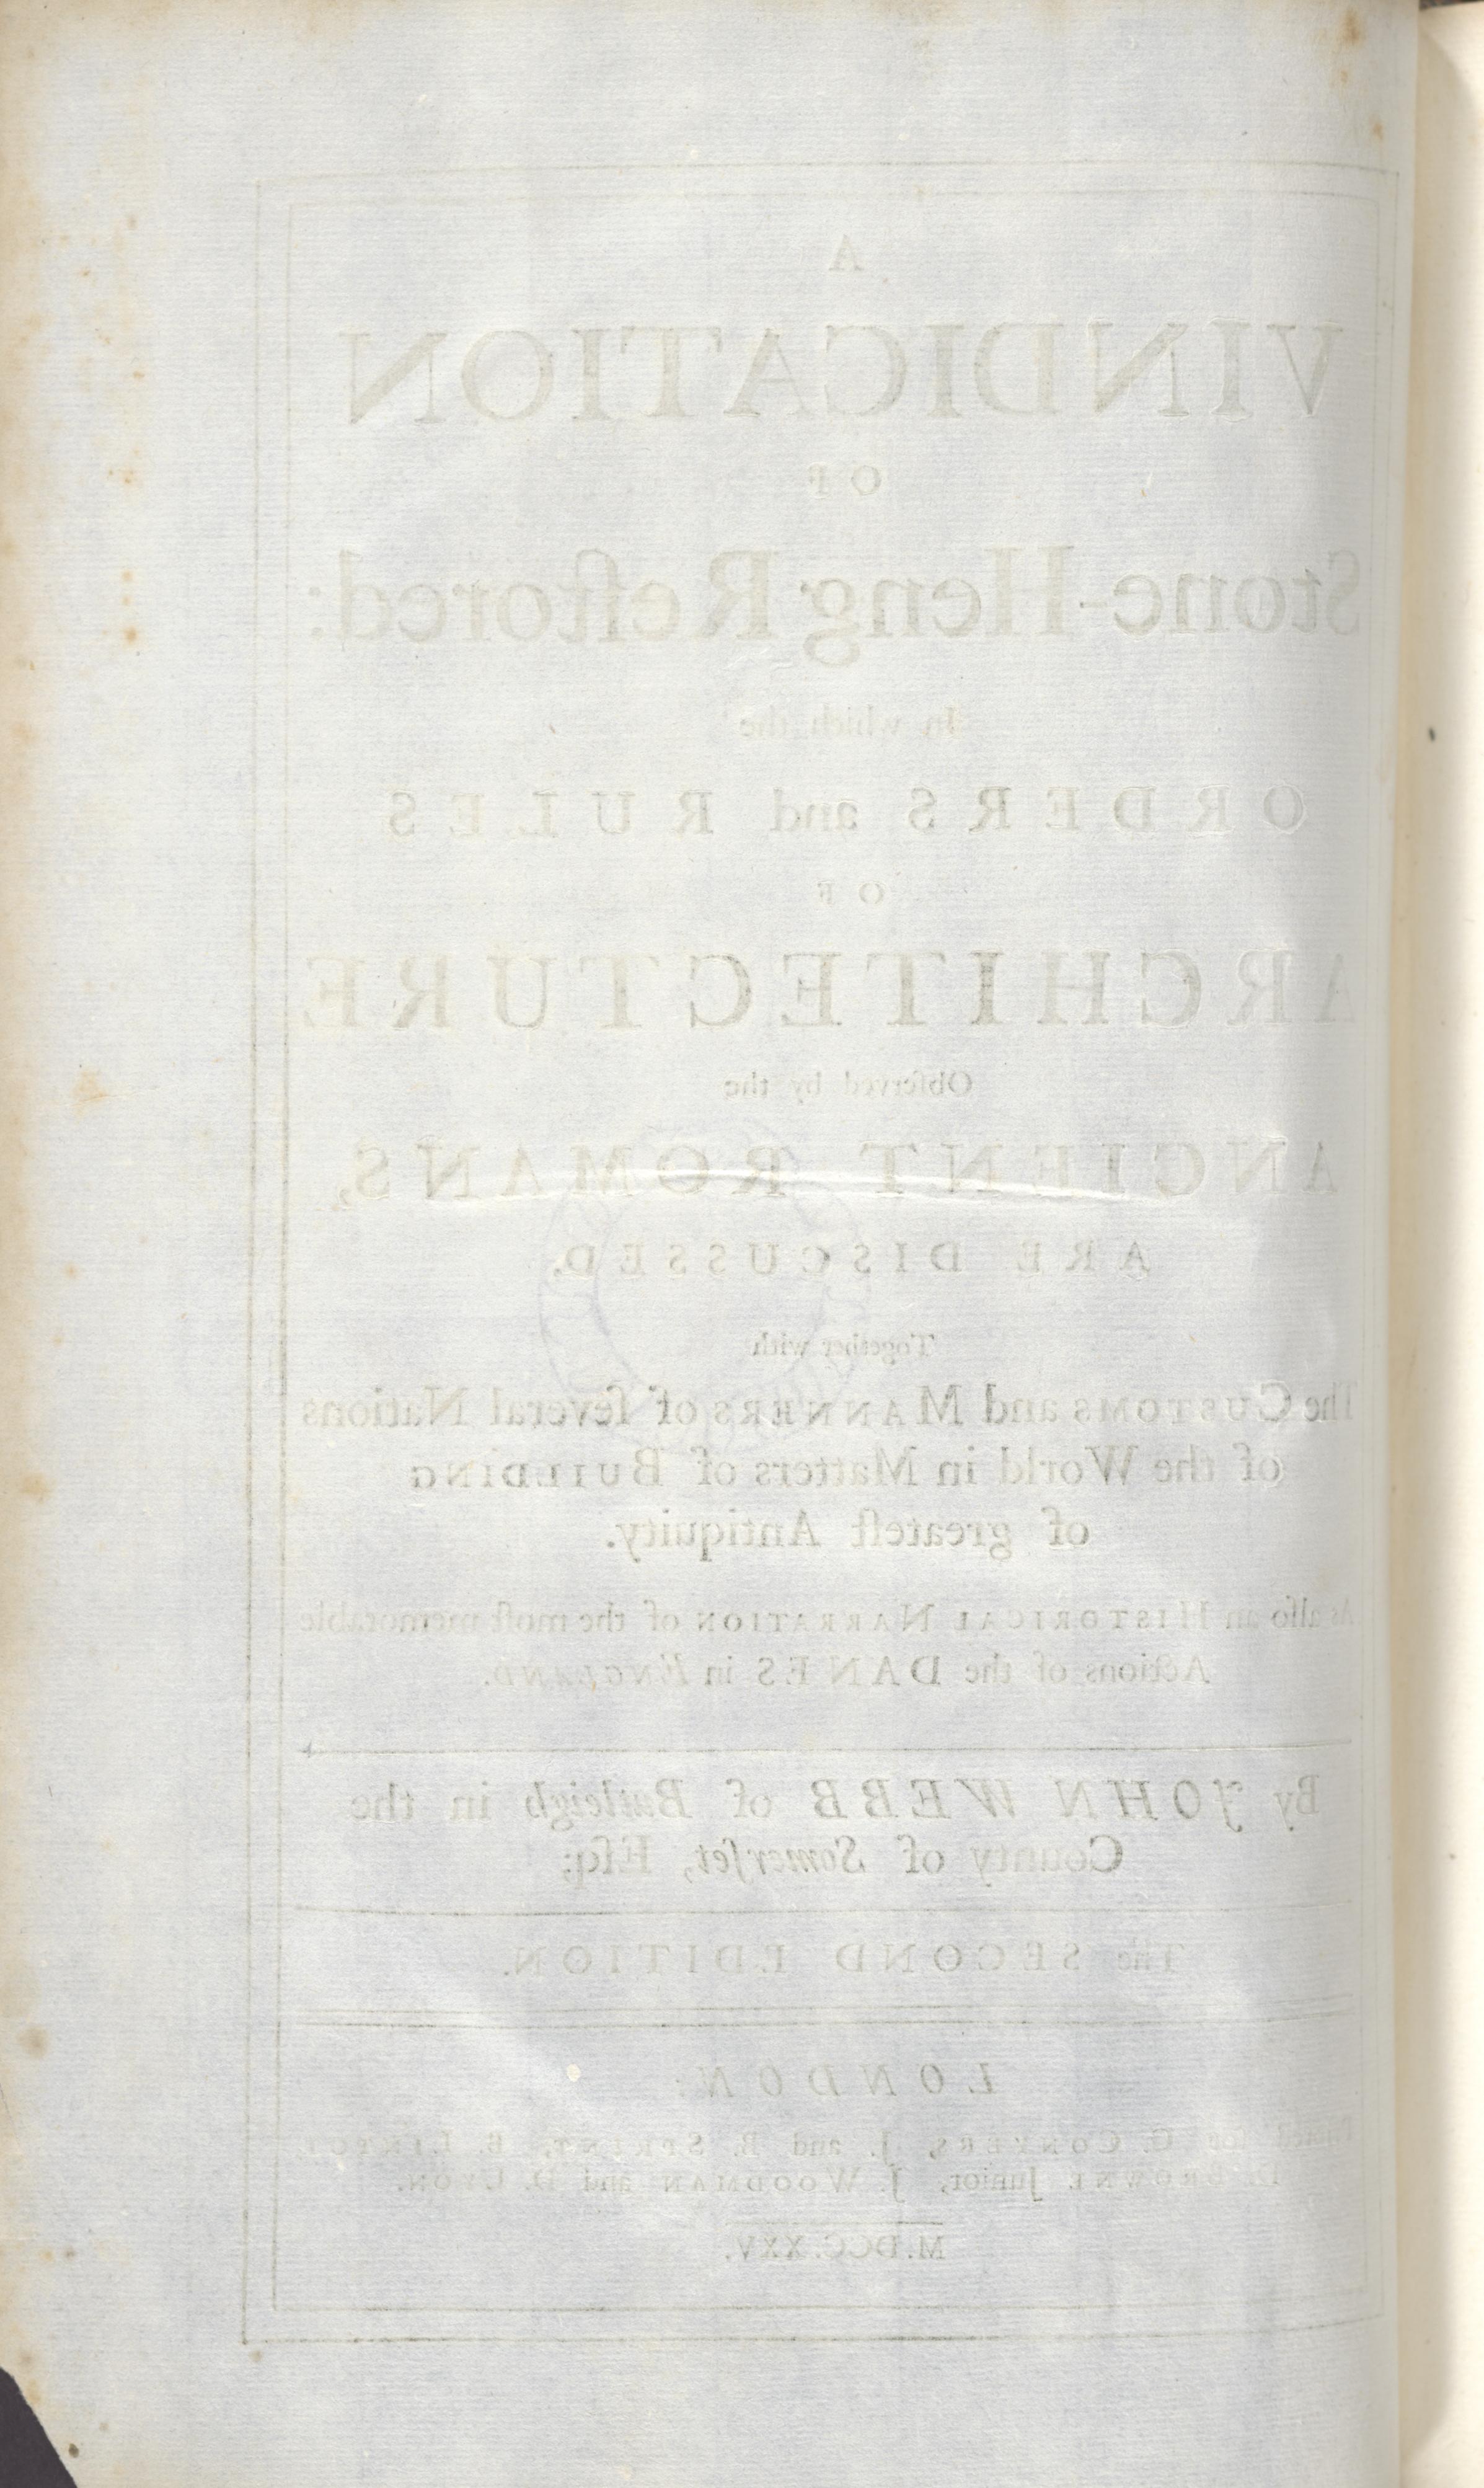 A
VINDICATION
OF
Stone-Heng Reſtored:
In which the
ORDERS and RULES
OF
ARCHITECTURE
Obſerved by the
ANCIENT ROMANS,
ARE DISCUSSED.
Together with
The CUSTOMS and MANNERS of ſeveral Nations
of the World in Matters of BUILDING
of greateſt Antiquity.
As alſo an HISTORICAL NARRATION of the moſt memorable
Actions of the DANES in ENGLAND.
By JOHN WEBB of Butleigh in the
County of Somerſet, Eſq;
The SECOND EDITION.
LONDON:
Printed for G. CONYERS, J. and B. SPRINT, B. LINTOT,
D. BROWNE Junior, J. WOODMAN and D. LYON.
M.DCC.XXV.